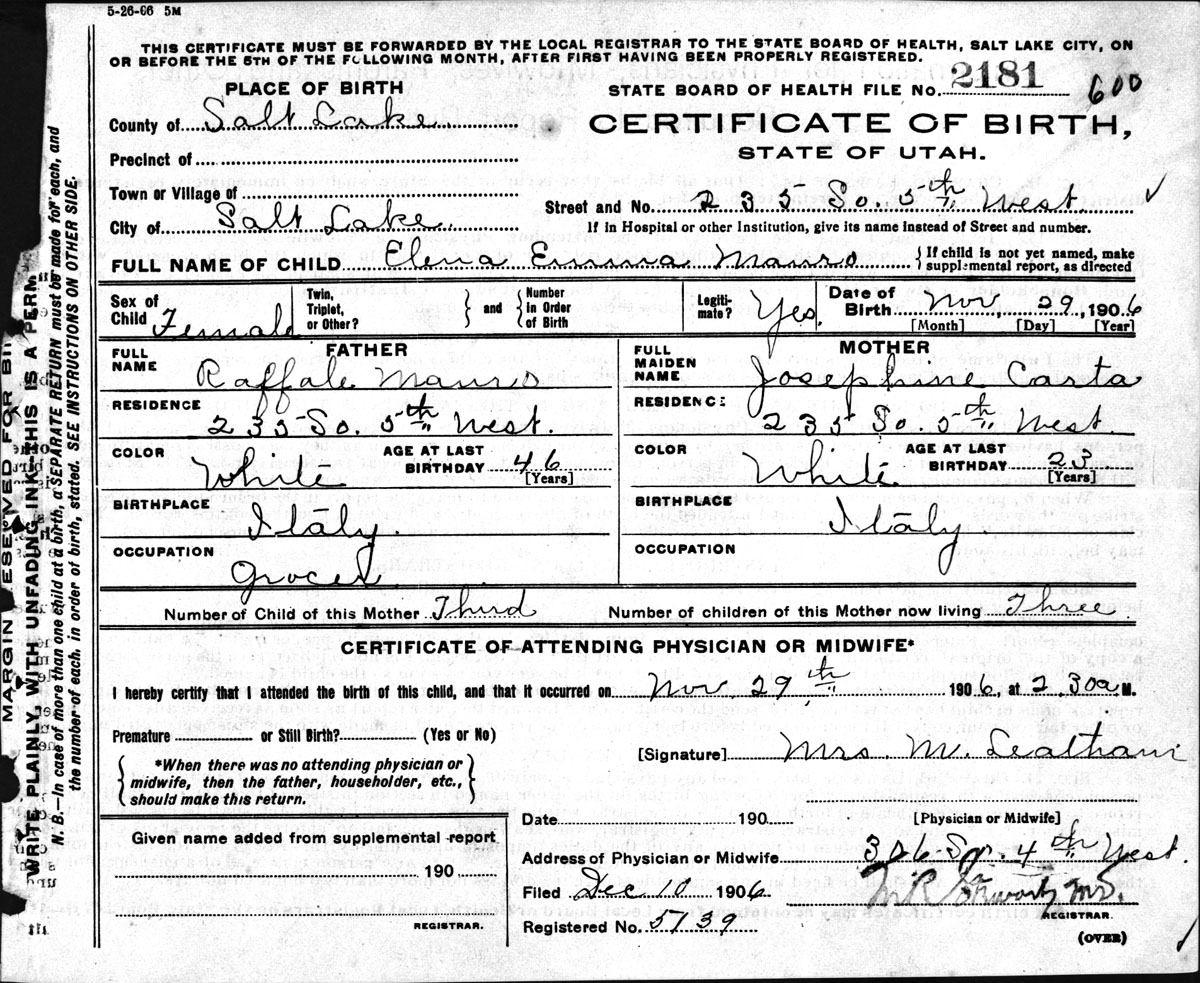 5-26-06 5M
THIS CERTIFICATE MUST BE FORWARDED BY THE LOCAL REGISTRAR TO THE STATE BOARD OF HEALTH, SALT LAKE CITY, ON
OR BEFORE THE 5TH OF THE FOLLOWING MONTH, AFTER FIRST HAVING BEEN PROPERLY REGISTERED.
PLACE OF BIRTH
STATE BOARD OF HEALTH FILE NO. 2181 600
County of Salt Lake
CERTIFICATE OF BIRTH,
Precinct of
STATE OF UTAH.
Town or Village of
Street and No. 235 So. 5th West
City of Salt Lake
If In Hospital or other Institution, give its name instead of Street and number.
FULL NAME OF CHILD Elena Emma Mauro {If child is not yet named, make
supplemental report, as directed
Sex of
Child Female
Twin,
Triplet,
or Other?
} and {
Number
In Order
of Birth
Legiti-
mate? Yes.
Date of
Birth Nov. 29, 1906
[Month] [Day] [Year]
FATHER
FULL
NAME Raffale Mauro
RESIDENCE
235 So. 5th West.
COLOR White
AGE AT LAST
BIRTHDAY 46
[Years]
BIRTHPLACE
Italy.
OCCUPATION
Grocer
MOTHER
FULL
MAIDEN
NAME Josephine Casta
RESIDENCE
235 So. 5th West
COLOR White
AGE AT LAST
BIRTHDAY 23
[Years]
BIRTHPLACE
Italy.
OCCUPATION
Number of Child of this Mother Third Number of children of this Mother now living Three
CERTIFICATE OF ATTENDING PHYSICIAN OR MIDWIFE*
I hereby certify that I attended the birth of this child, and that it occurred on Nov 29th 1906, at 2.30a M.
Premature or Still Birth? (Yes or No)
[Signature] Mrs M.
{*When there was no attending physician or
midwife, then the father, householder, etc.,
should make this return.}
Date 190
[Physician or Midwife]
Given name added from supplemental report
190
REGISTRAR.
Address of Physician or Midwife. So. 4th West.
Filed Dec 10 1906
REGISTRAR.
Registered No. 5739
(OVER)
MARGIN RESERVED FOR BI
WRITE PLAINLY, WITH UNFADING INK—THIS IS A PERM
N. B.—In case of more than one child at a birth, a SEPARATE RETURN must be made for each, and
the number of each, in order of birth, stated. SEE INSTRUCTIONS ON OTHER SIDE.